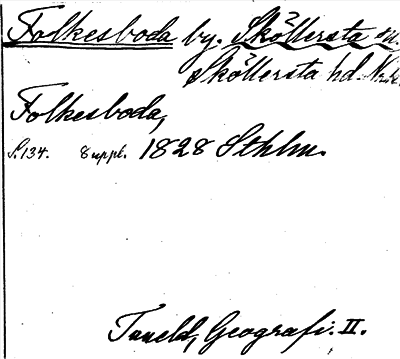 Folkesboda by. Sköllersta sn.
Sköllersta hd. Nrk.
Folkesboda,
S. 134. 8 uppl. 1828 Sthlm.
Tuneld, Geografi. II.